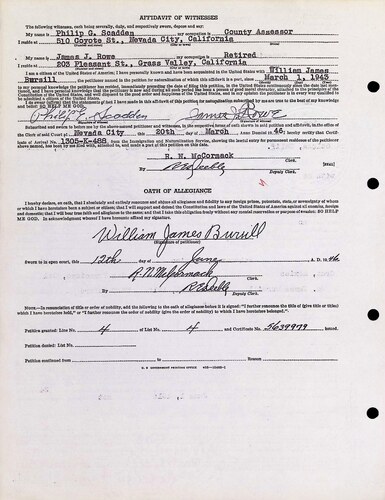 AFFIDAVIT OF WITNESSES
The following witnesses, each being severally, duly, and respectively sworn, depose and say:
My name is Philip G. Scadden my occupation is County Assessor
I reside at 510 Coyote St., Nevada City, California
My name is James J. Rowe my occupation is Retired
I reside at 203 Pleasant St., Grass Valley, California
I am a citizen of the United States of America; I have personally known and have been acquainted in the United States with William James
Bursill, the petitioner named in the petition for naturalization of which this affidavit is a part, since March 1, 1943
to my personal knowledge the petitioner has resided, immediately preceding the date of filing this petition, in the United States continuously since the date last mentioned,
and I have personal knowledge that the petitioner is and during all such period has been a person of good moral character, attached to the principles of the
Constitution of the United States, and well disposed to the good order and happiness of the United States, and in my opinion the petitioner is in every way qualified to
be admitted a citizen of the United States.
I do swear (affirm) that the statements of fact I have made in this affidavit of this petition for naturalization subscribed by me are true to the best of my knowledge
and belief: SO HELP ME GOD.
Philip G Scadden James J. Rowe
Subscribed and sworn to before me by the above-named petitioner and witnesses, in the respective forms of oath shown in said petition and affidavit, in the office of
the Clerk of said Court at Nevada City this 20th day of March Anno Domini 1946. I hereby certify that
Certificate of Arrival No. 1305-K-488 from the Immigration and Naturalization Service, showing the lawful entry for permanent residence of the petitioner
above named, together with
R. N. McCormack
Clerk.
By
Deputy Clerk.
OATH OF ALLEGIANCE
I hereby declare, on oath, that I absolutely and entirely renounce and abjure all allegiance and fidelity to any foreign prince, potentate, state, or sovereignty of whom
or which I have heretofore been a subject or citizen; that I will support and defend the Constitution and laws of the United States of America against all enemies, foreign
and domestic; that I will bear true faith and allegiance to the same; and that I take this obligation freely without any mental reservation or purpose of evasion: SO HELP
ME GOD. In acknowledgment whereof I have hereunto affixed my signature.
William James Bursill
(Signature of petitioner)
Sworn to in open court, this 12th day of June, A. D. 1946
R. N. McCormack
Clerk.
By
Deputy Clerk.
NOTE.—In renunciation of title or order of nobility, add the following to the oath of allegiance before it is signed: "I further renounce the title of (give title or titles)
which I have heretofore held," or "I further renounce the order of nobility (give the order of nobility) to which I have heretofore belonged."
Petition granted: Line No. 4 of List No. 4 and Certificate No. 5639979 issued.
Petition denied: List No.
Petition continued from to Reason
U. S. GOVERNMENT PRINTING OFFICE